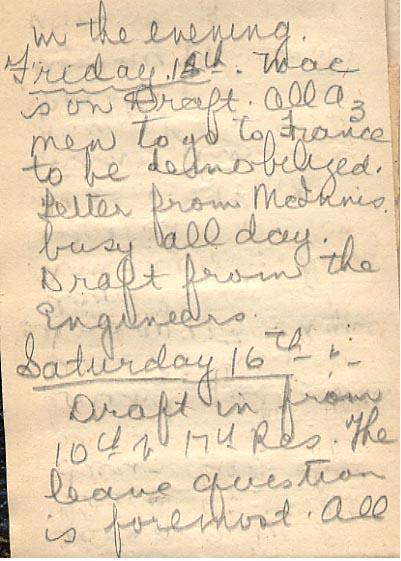 in the evening.
Friday 15th. Mac
is on Draft. All A3
men to go to France
to be demobilized.
Letter from McInnis.
busy all day.
Draft from the
Engineers.
Saturday 16th :-
Draft in from
10th & 17th Res. The
leave question
is foremost. All